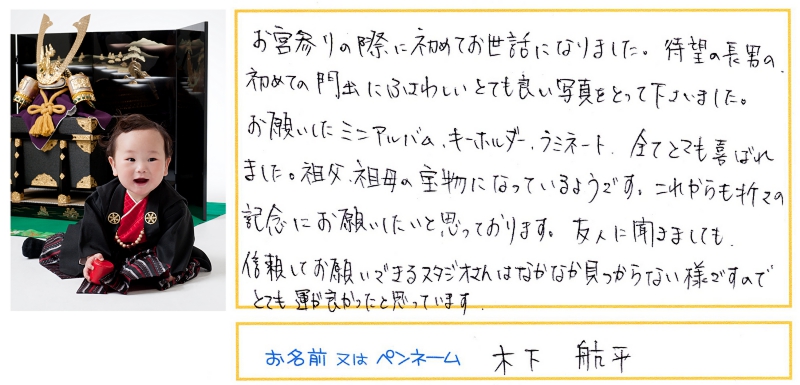 お宮参りの際に初めてお世話になりました。待望の長男の、
初めての門出にふさわしいとても良い写真をとって下さいました。
お願いしたミニアルバム、キーホルダー、ラミネート、全てとても喜ばれ
ました。祖父、祖母の宝物になっているようです。これからも折々の
記念にお願いしたいと思っております。友人に聞きましても、
信頼してお願いできるスタジオさんはなかなか見つからない様ですので
とても運が良かったと思っています。
お名前 又は ペンネーム 木下 航平